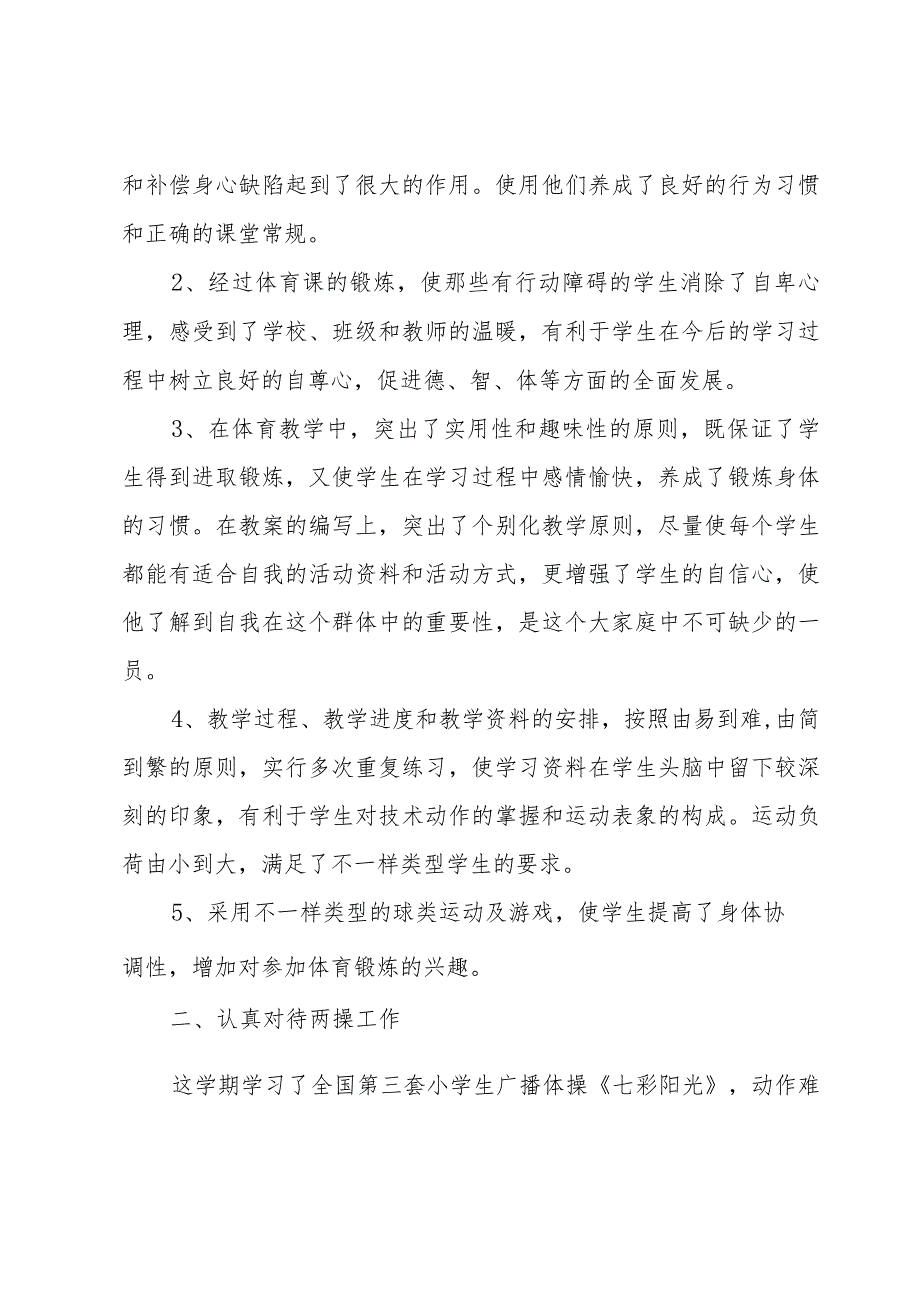 和补偿身心缺陷起到了很大的作用。使用他们养成了良好的行为习惯
和正确的课堂常规。
2、经过体育课的锻炼，使那些有行动障碍的学生消除了自卑心
理，感受到了学校、班级和教师的温暖，有利于学生在今后的学习过
程中树立良好的自尊心，促进德、智、体等方面的全面发展。
3、在体育教学中，突出了实用性和趣味性的原则，既保证了学
生得到进取锻炼，又使学生在学习过程中感情愉快，养成了锻炼身体
的习惯。在教案的编写上，突出了个别化教学原则，尽量使每个学生
都能有适合自我的活动资料和活动方式，更增强了学生的自信心，使
他了解到自我在这个群体中的重要性，是这个大家庭中不可缺少的一
员。
4、教学过程、教学进度和教学资料的安排，按照由易到难,由简
到繁的原则，实行多次重复练习，使学习资料在学生头脑中留下较深
刻的印象，有利于学生对技术动作的掌握和运动表象的构成。运动负
荷由小到大，满足了不一样类型学生的要求。
5、采用不一样类型的球类运动及游戏，使学生提高了身体协
调性，增加对参加体育锻炼的兴趣。
二、认真对待两操工作
这学期学习了全国第三套小学生广播体操《七彩阳光》，动作难